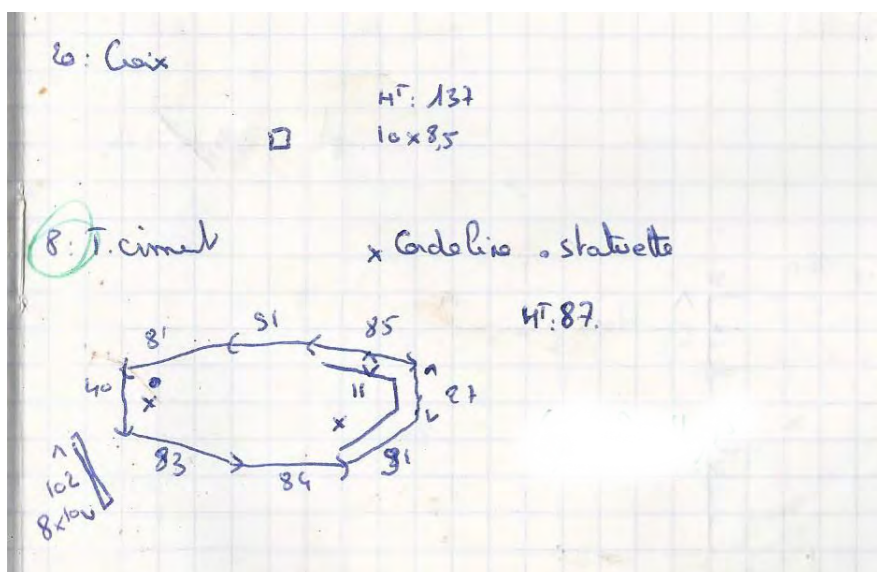 20: Croix
HT: 137
10 x 8,5
8: T. ciment x Cordeline . statuette
HT: 87.
81 91 85
40 x 11 27
x
83 84 91
102
8x10